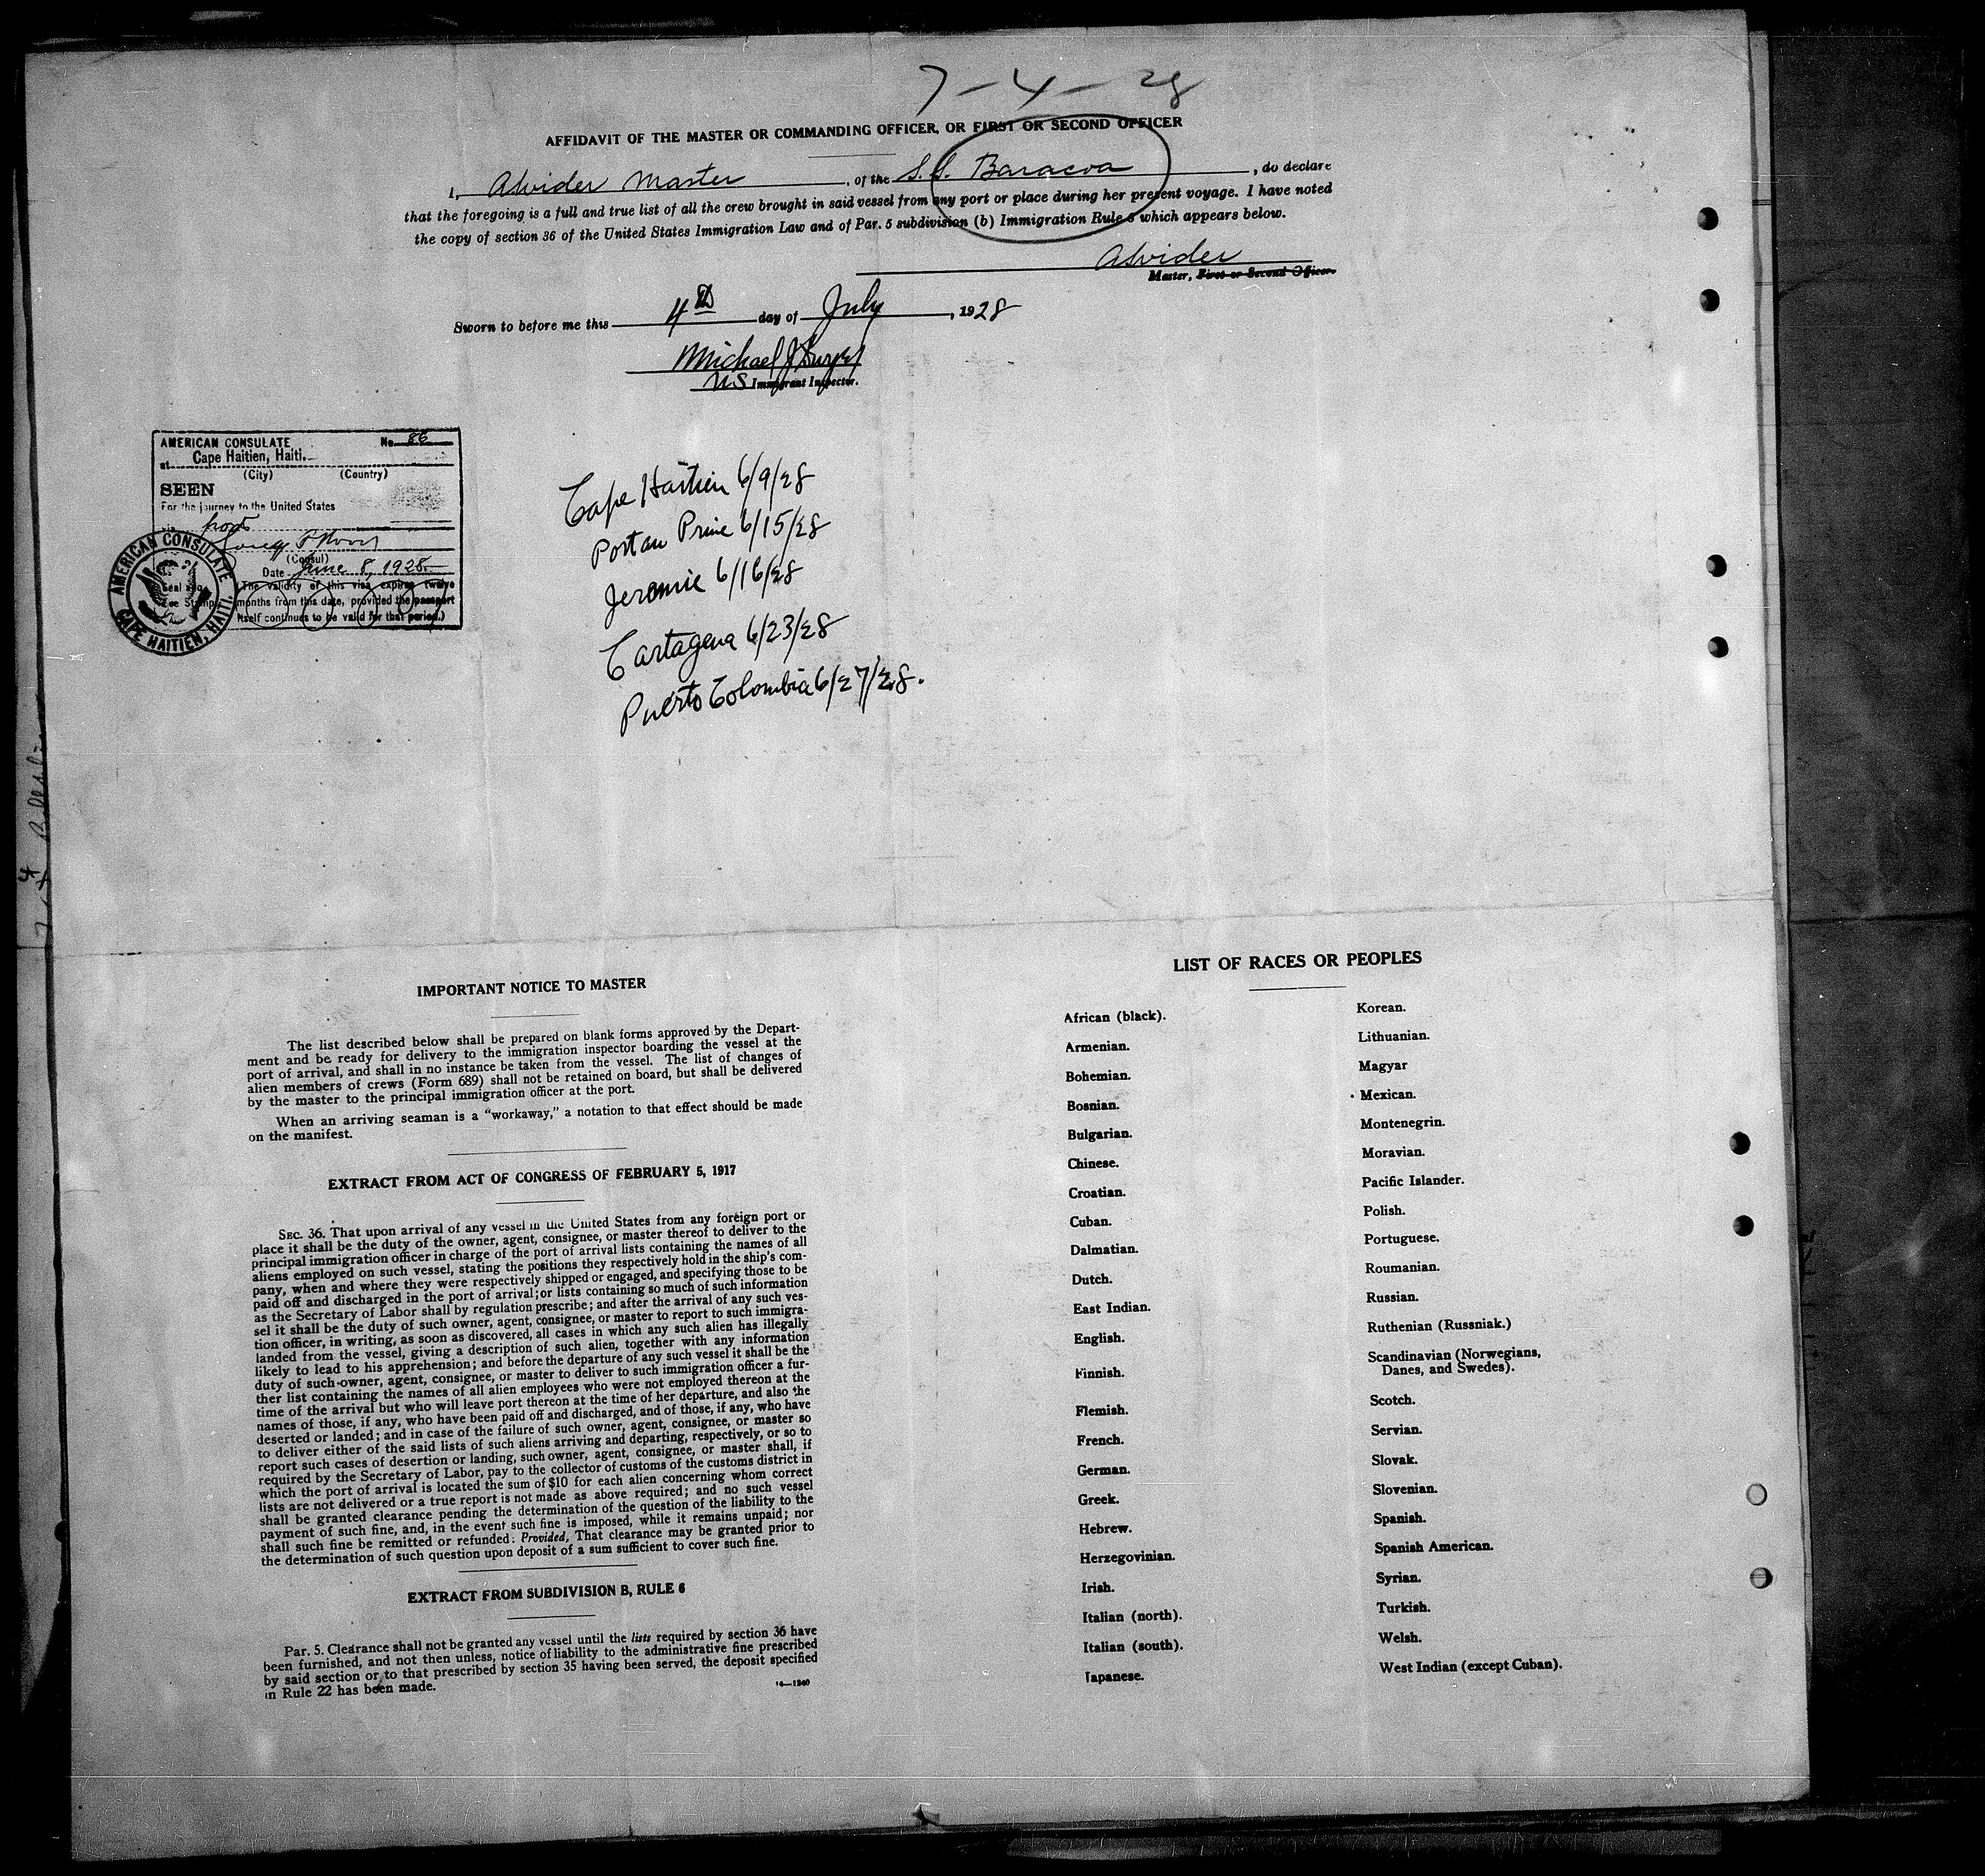 7-4-28
AFFIDAVIT OF THE MASTER OR COMMANDING OFFICER, OR FIRST OR SECOND OFFICER
I, Alvider Master, of the S.S. Baracoa, do declare
that the foregoing is a full and true list of all the crew brought in said vessel from any port or place during her present voyage. I have noted
the copy of section 36 of the United States Immigration Law and of Par. 5 subdivision (b) Immigration Rule 6 which appears below.
Alvider
Master, First or Second Officer.
Sworn to before me this 4th day of July, 1928
Michael J
US Immigrant Inspector.
AMERICAN CONSULATE No. 86
at Cape Haitien, Haiti.
(City) (Country)
SEEN
For the journey to the United States
via
(Consul)
Date June 8, 1928.
(The validity of this visa expires twelve
months from this date, provided the passport
itself continues to be valid for that period.)
AMERICAN CONSULATE
CAPE HAITIEN, HAITI.
Cape Haitien 6/9/28
Port au Prince 6/15/28
Jeremie 6/16/28
Cartagena 6/23/28
Puerto Colombia 6/27/28.
IMPORTANT NOTICE TO MASTER
The list described below shall be prepared on blank forms approved by the Depart-
ment and be ready for delivery to the immigration inspector boarding the vessel at the
port of arrival, and shall in no instance be taken from the vessel. The list of changes of
alien members of crews (Form 689) shall not be retained on board, but shall be delivered
by the master to the principal immigration officer at the port.
When an arriving seaman is a "workaway," a notation to that effect should be made
on the manifest.
EXTRACT FROM ACT OF CONGRESS OF FEBRUARY 5, 1917
SEC. 36. That upon arrival of any vessel in the United States from any foreign port or
place it shall be the duty of the owner, agent, consignee, or master thereof to deliver to the
principal immigration officer in charge of the port of arrival lists containing the names of all
aliens employed on such vessel, stating the positions they respectively hold in the ship's com-
pany, when and where they were respectively shipped or engaged, and specifying those to be
paid off and discharged in the port of arrival; or lists containing so much of such information
as the Secretary of Labor shall by regulation prescribe; and after the arrival of any such ves-
sel it shall be the duty of such owner, agent, consignee, or master to report to such immigra-
tion officer, in writing, as soon as discovered, all cases in which any such alien has illegally
landed from the vessel, giving a description of such alien, together with any information
likely to lead to his apprehension; and before the departure of any such vessel it shall be the
duty of such owner, agent, consignee, or master to deliver to such immigration officer a fur-
ther list containing the names of all alien employees who were not employed thereon at the
time of the arrival but who will leave port thereon at the time of her departure, and also the
names of those, if any, who have been paid off and discharged, and of those, if any, who have
deserted or landed; and in case of the failure of such owner, agent, consignee, or master so
to deliver either of the said lists of such aliens arriving and departing, respectively, or so to
report such cases of desertion or landing, such owner, agent, consignee, or master shall, if
required by the Secretary of Labor, pay to the collector of customs of the customs district in
which the port of arrival is located the sum of $10 for each alien concerning whom correct
lists are not delivered or a true report is not made as above required; and no such vessel
shall be granted clearance pending the determination of the question of the liability to the
payment of such fine, and, in the event such fine is imposed, while it remains unpaid; nor
shall such fine be remitted or refunded: Provided, That clearance may be granted prior to
the determination of such question upon deposit of a sum sufficient to cover such fine.
EXTRACT FROM SUBDIVISION B, RULE 6
Par. 5. Clearance shall not be granted any vessel until the lists required by section 36 have
been furnished, and not then unless, notice of liability to the administrative fine prescribed
by said section or to that prescribed by section 35 having been served, the deposit specified
in Rule 22 has been made.
14—1240
LIST OF RACES OR PEOPLES
African (black).
Armenian.
Bohemian.
Bosnian.
Bulgarian.
Chinese.
Croatian.
Cuban.
Dalmatian.
Dutch.
East Indian.
English.
Finnish.
Flemish.
French.
German.
Greek.
Hebrew.
Herzegovinian.
Irish.
Italian (north).
Italian (south).
Japanese.
Korean.
Lithuanian.
Magyar
Mexican.
Montenegrin.
Moravian.
Pacific Islander.
Polish.
Portuguese.
Roumanian.
Russian.
Ruthenian (Russniak.)
Scandinavian (Norwegians,
Danes, and Swedes).
Scotch.
Servian.
Slovak.
Slovenian.
Spanish.
Spanish American.
Syrian.
Turkish.
Welsh.
West Indian (except Cuban).